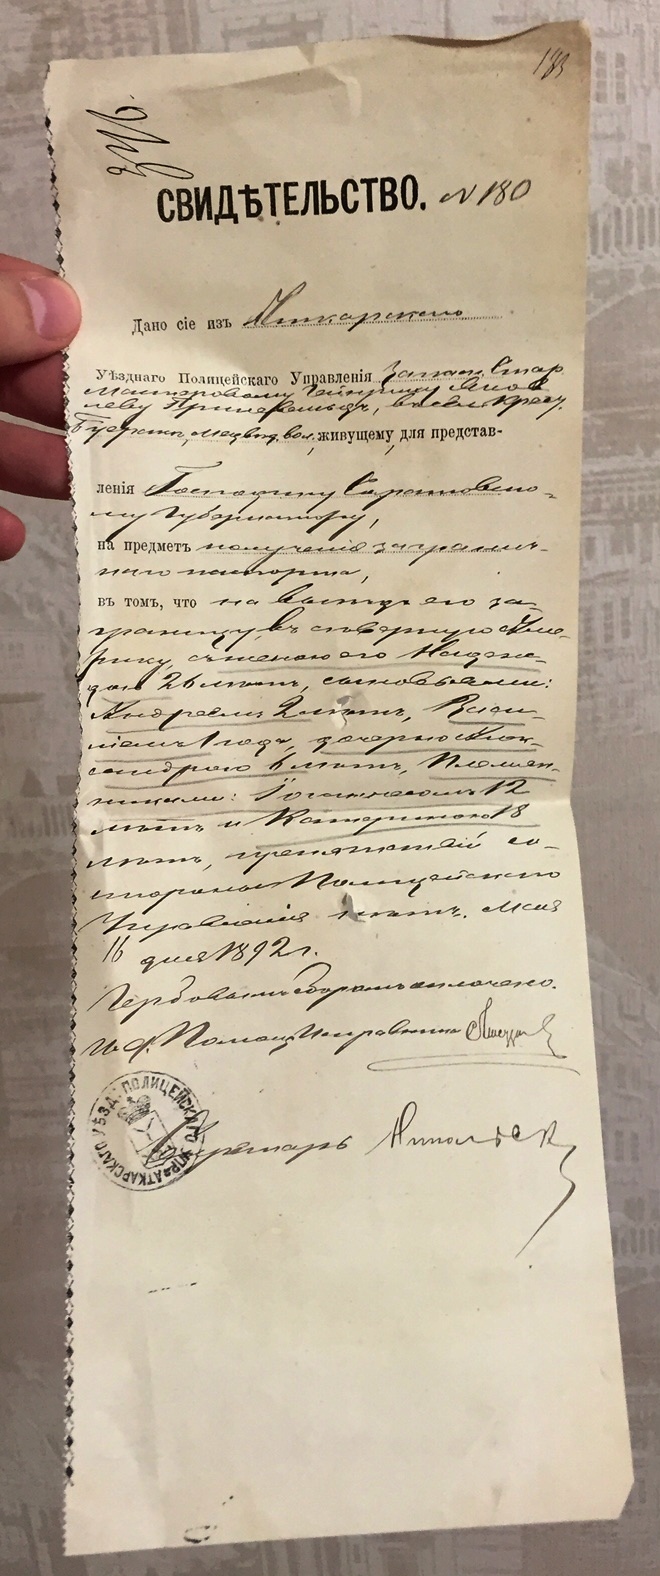 183
СВИДѢТЕЛЬСТВО. N 180
Дано сіе изъ Аткарскаго
Уѣзднаго Полицейскаго Управленія Запасн. Стар.
Мастеровому Гейнриху Яков
леву
живущему для представ-
ленія Господину Саратовско-
му Губернатору,
на предметъ полученія заграни-
чнаго паспорта,
въ томъ, что на выѣздъ его за-
границу, въ сѣверную Аме-
рику, съ женою его Надеж-
дою 26 лѣтъ, сыновьями:
Андреемъ 2 лѣтъ,
1 года, дочерью Алек-
сандрою 6 лѣтъ, племян-
никами: Іоганнесомъ 12
лѣтъ и Катериною 18
лѣтъ, препятствій со
стороны Полицейскаго
Управленія нѣтъ. Мая
16 дня 1892 г.
Гербовымъ сборомъ оплачено.
И. д. Помощ. Исправника
Секретарь Никольск
АТКАРСКАГО УѢЗД. ПОЛИЦЕЙСКАГО УПРАВ.